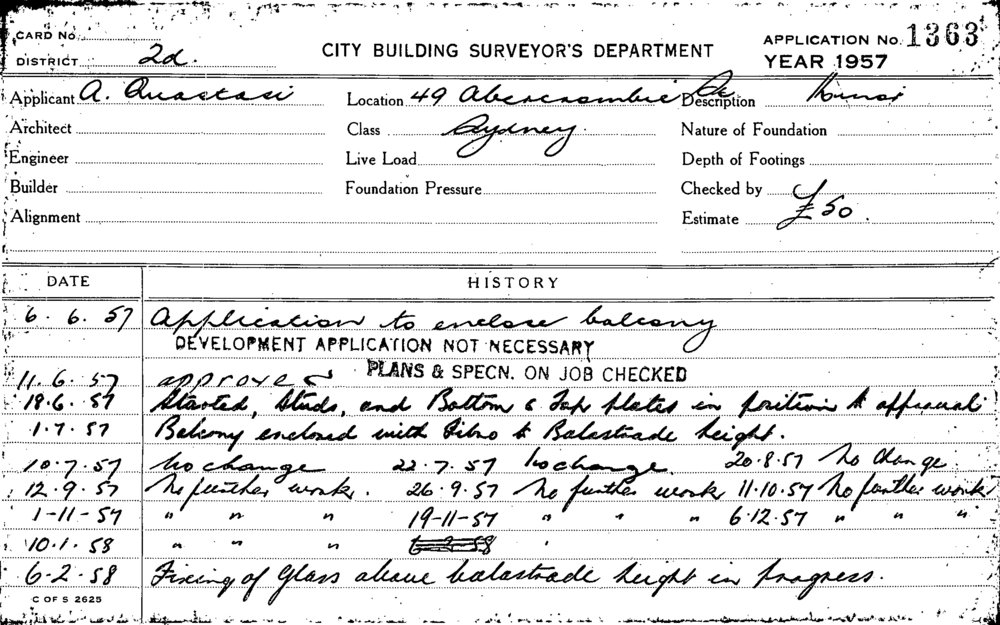 CARD No.
APPLICATION No. 1363
DISTRICT 2d.
CITY BUILDING SURVEYOR'S DEPARTMENT
YEAR 1957
Applicant A. Quastasi Location 49 Abercrombie Description Minor
Architect Class Sydney. Nature of Foundation
Engineer Live Load Depth of Footings
Builder Foundation Pressure Checked by
Alignment Estimate £50.
DATE HISTORY
6. 6. 57 Application to enclose balcony
DEVELOPMENT APPLICATION NOT NECESSARY
11. 6. 57 approved PLANS & SPECN. ON JOB CHECKED
18. 6. 57 Started, Studs, and Bottom & Top plates in position to approval
1. 7. 57 Balcony enclosed with Fibro to Balastrade height.
10. 7. 57 No change 22. 7. 57 No change. 20. 8. 57 No change.
12. 9. 57 No further work. 26. 9. 57 No further work 11. 10. 57 No further work
1-11-57 " " " 19-11-57 " " " 6. 12. 57 " " "
10. 1. 58 " " "
6-2. 58 Fixing of Glass above balastrade height in progress.
C OF S 2625